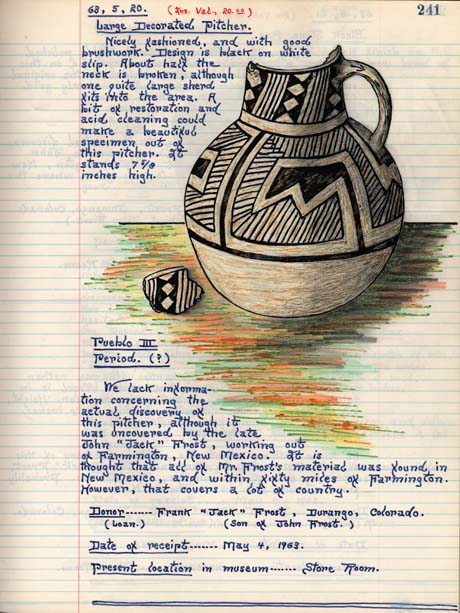 63, 5, 20. (Ins. Val., 20.00)
241
Large Decorated Pitcher.
Nicely fashioned, and with good
brushwork. Design is black on white
slip. About half the
neck is broken, although
one quite large sherd
fits into the area. A
bit of restoration and
acid cleaning could
make a beautiful
specimen out of
this pitcher. It
stands 7 7/8
inches high.
Pueblo III
Period. (?)
We lack informa-
tion concerning the
actual discovery of
this pitcher, although it
was uncovered by the late
John "Jack" Frost, working out
of Farmington, New Mexico. It is
thought that all of Mr. Frost's material was found in
New Mexico, and within fifty miles of Farmington.
However, that covers a lot of country.
Donor------ Frank "Jack" Frost, Durango, Colorado.
(Loan.) (Son of John Frost.)
Date of receipt------- May 4, 1963.
Present location in museum------- Store Room.